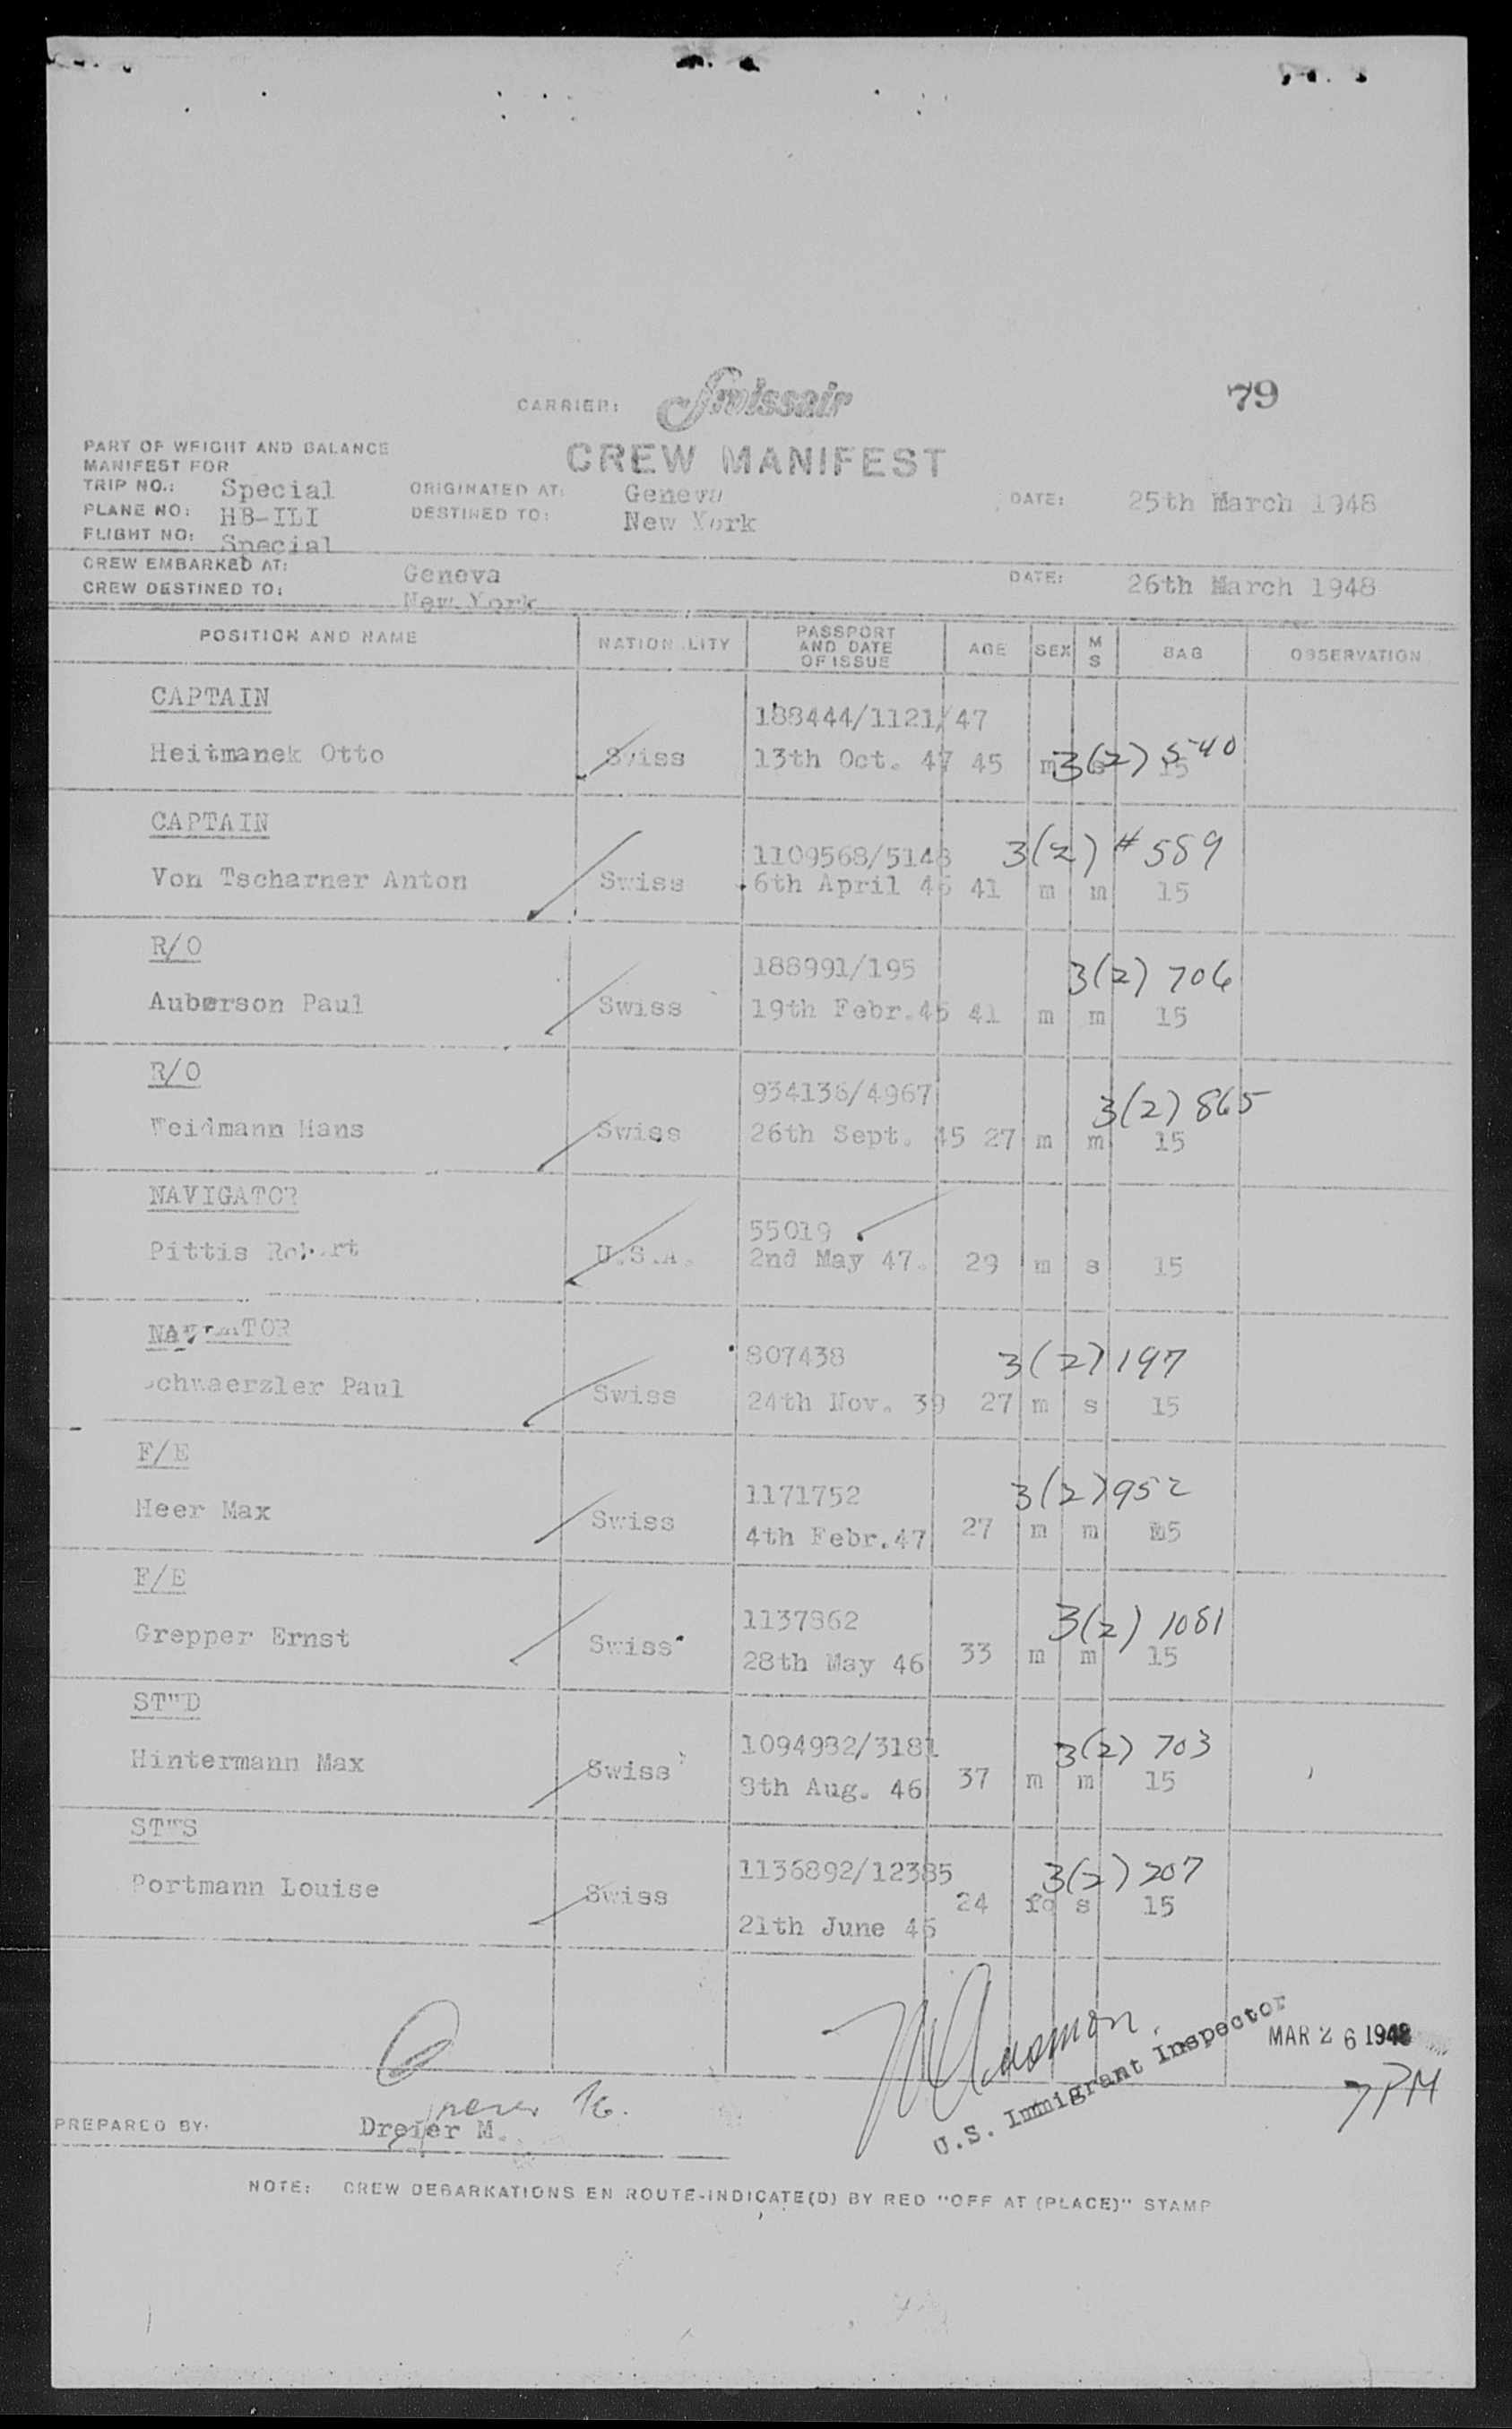 79
CARRIER: Swissair
CREW MANIFEST
PART OF WEIGHT AND BALANCE
MANIFEST FOR
TRIP NO.: Special ORIGINATED AT: Geneva DATE: 25th March 1948
PLANE NO: HB-ILI DESTINED TO: New York
FLIGHT NO: Special
CREW EMBARKED AT: Geneva DATE: 26th March 1948
CREW DESTINED TO: New York
POSITION AND NAME NATIONALITY PASSPORT AND DATE OF ISSUE AGE SEX M S BAG OBSERVATION
CAPTAIN
188444/1121/47
Heitmanek Otto Swiss 13th Oct. 47 45 m s 15
3(2) 540
CAPTAIN
1109568/5148 3(2) #589
Von Tscharner Anton Swiss 6th April 46 41 m m 15
R/O
188991/195 3(2) 706
Auberson Paul Swiss 19th Febr.46 41 m m 15
R/O
934136/4967 3(2) 865
Weidmann Hans Swiss 26th Sept. 45 27 m m 15
NAVIGATOR
55019
Pittis Robert U.S.A. 2nd May 47. 29 m s 15
NAVIGATOR
807438 3(2) 197
Schwaerzler Paul Swiss 24th Nov. 39 27 m s 15
F/E
1171752 3(2) 952
Heer Max Swiss 4th Febr.47 27 m m m5
F/E
1137862 3(2) 1081
Grepper Ernst Swiss 28th May 46 33 m m 15
ST"D
1094982/3181 3(2) 703
Hintermann Max Swiss 8th Aug. 46 37 m m 15
ST"S
1136892/12385 3(2) 207
Portmann Louise Swiss 24 s 15
21th June 46
U.S. Immigrant Inspector
MAR 26 1948
7PM
PREPARED BY: Dreier M.
NOTE: CREW DEBARKATIONS EN ROUTE-INDICATE(D) BY RED "OFF AT (PLACE)" STAMP